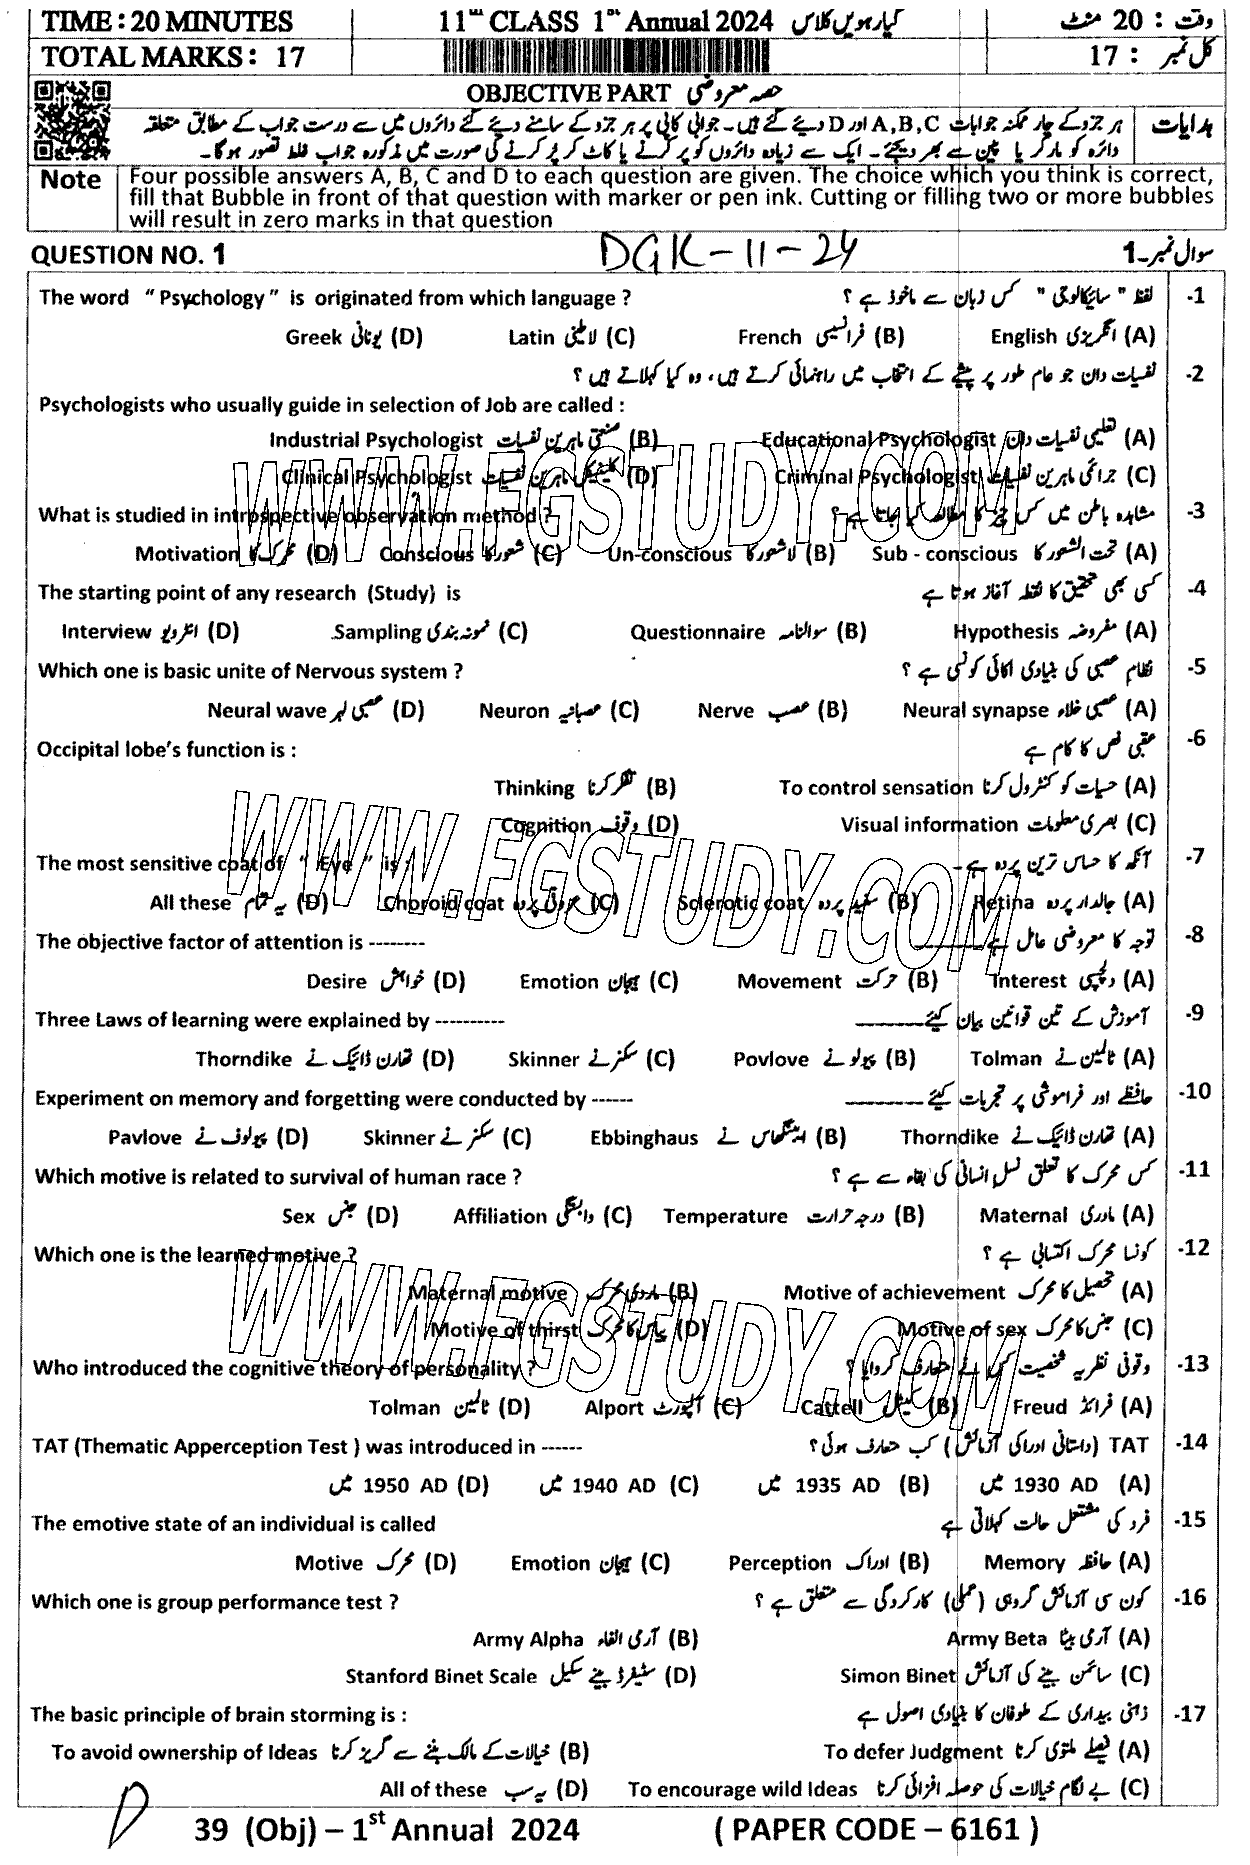 TIME: 20 MINUTES 11th CLASS 1st Annual 2024 گیارہویں کلاس وقت : 20 منٹ
TOTAL MARKS: 17 کل نمبر : 17
OBJECTIVE PART حصہ معروضی
ہدایات ہر جزو کے چار ممکنہ جوابات A,B,C اور D دیئے گئے ہیں۔ جوابی کاپی پر ہر جزو کے سامنے دیئے گئے دائروں میں سے درست جواب کے مطابق متعلقہ
دائرہ کو مارکر یا پین سے بھر دیجئے۔ ایک سے زیادہ دائروں کو پر کرنے یا کاٹ کر پُر کرنے کی صورت میں مذکورہ جواب غلط تصور ہوگا۔
Note Four possible answers A, B, C and D to each question are given. The choice which you think is correct,
fill that Bubble in front of that question with marker or pen ink. Cutting or filling two or more bubbles
will result in zero marks in that question
QUESTION NO. 1 DGK-11-24 سوال نمبر۔1
The word " Psychology " is originated from which language ? لفظ " سائیکالوجی " کس زبان سے ماخوذ ہے ؟ -1
Greek یونانی (D) Latin لاطینی (C) French فرانسیسی (B) English انگریزی (A)
نفسیات دان جو عام طور پر پیشے کے انتخاب میں راہنمائی کرتے ہیں، وہ کیا کہلاتے ہیں ؟ -2
Psychologists who usually guide in selection of Job are called :
Industrial Psychologist صنعتی ماہرین نفسیات (B) Educational Psychologist تعلیمی نفسیات دان (A)
Clinical Psychologist کلینیکل ماہرین نفسیات (D) Criminal Psychologist جرائمی ماہرین نفسیات (C)
What is studied in introspective observation method ? مشاہدہ باطن میں کس چیز کا مطالعہ کیا جاتا ہے ؟ -3
Motivation محرک کا (D) Conscious شعور کا (C) Un-conscious لاشعور کا (B) Sub - conscious تحت الشعور کا (A)
The starting point of any research (Study) is کسی بھی تحقیق کا نقطہ آغاز ہوتا ہے -4
Interview انٹرویو (D) Sampling نمونہ بندی (C) Questionnaire سوالنامہ (B) Hypothesis مفروضہ (A)
Which one is basic unite of Nervous system ? نظام عصبی کی بنیادی اکائی کونسی ہے ؟ -5
Neural wave عصبی لہر (D) Neuron عصبانیہ (C) Nerve عصب (B) Neural synapse عصبی خلاء (A)
Occipital lobe's function is : عقبی نص کا کام ہے -6
Thinking تفکر کرنا (B) To control sensation حسیات کو کنٹرول کرنا (A)
Cognition وقوف (D) Visual information بصری معلومات (C)
The most sensitive coat of " Eye " is : آنکھ کا حساس ترین پردہ ہے۔ -7
All these یہ تمام (D) Choroid coat عروقی پردہ (C) Sclerotic coat سفید پردہ (B) Retina جالدار پردہ (A)
The objective factor of attention is -------- توجہ کا معروضی عامل ہے ______ -8
Desire خواہش (D) Emotion ہیجان (C) Movement حرکت (B) Interest دلچسپی (A)
Three Laws of learning were explained by ---------- آموزش کے تین قوانین بیان کیئے ______ -9
Thorndike تھارن ڈائیک نے (D) Skinner سکنر نے (C) Povlove پیولو نے (B) Tolman ٹالمین نے (A)
Experiment on memory and forgetting were conducted by ------ حافظے اور فراموشی پر تجربات کیئے ______ -10
Pavlove پیولوف نے (D) Skinner سکنر نے (C) Ebbinghaus ایبنگھاس نے (B) Thorndike تھارن ڈائیک نے (A)
Which motive is related to survival of human race ? کس محرک کا تعلق نسل انسانی کی بقاء سے ہے ؟ -11
Sex جنس (D) Affiliation وابستگی (C) Temperature درجہ حرارت (B) Maternal مادری (A)
Which one is the learned motive ? کونسا محرک اکتسابی ہے ؟ -12
Maternal motive مادری محرک (B) Motive of achievement تحصیل کا محرک (A)
Motive of thirst پیاس کا محرک (D) Motive of sex جنس کا محرک (C)
Who introduced the cognitive theory of personality ? وقوفی نظریہ شخصیت کس نے متعارف کروایا ؟ -13
Tolman ٹالمین (D) Alport آلپورٹ (C) Cattell کیٹل (B) Freud فرائڈ (A)
TAT (Thematic Apperception Test ) was introduced in ------ TAT (داستانی ادراکی آزمائش) کب متعارف ہوئی؟ -14
1950 AD میں (D) 1940 AD میں (C) 1935 AD میں (B) 1930 AD میں (A)
The emotive state of an individual is called فرد کی مشتعل حالت کہلاتی ہے -15
Motive محرک (D) Emotion ہیجان (C) Perception ادراک (B) Memory حافظہ (A)
Which one is group performance test ? کون سی آزمائش گروہی (عملی) کارکردگی سے متعلق ہے ؟ -16
Army Alpha آرمی الفاء (B) Army Beta آرمی بیٹا (A)
Stanford Binet Scale سٹینفرڈ بینے سکیل (D) Simon Binet سائمن بینے کی آزمائش (C)
The basic principle of brain storming is : ذہنی بیداری کے طوفان کا بنیادی اصول ہے -17
To avoid ownership of Ideas خیالات کے مالک بننے سے گریز کرنا (B) To defer Judgment فیصلے ملتوی کرنا (A)
All of these یہ سب (D) To encourage wild Ideas بے لگام خیالات کی حوصلہ افزائی کرنا (C)
39 (Obj) – 1st Annual 2024 ( PAPER CODE – 6161 )
WWW.FGSTUDY.COM
WWW.FGSTUDY.COM
WWW.FGSTUDY.COM